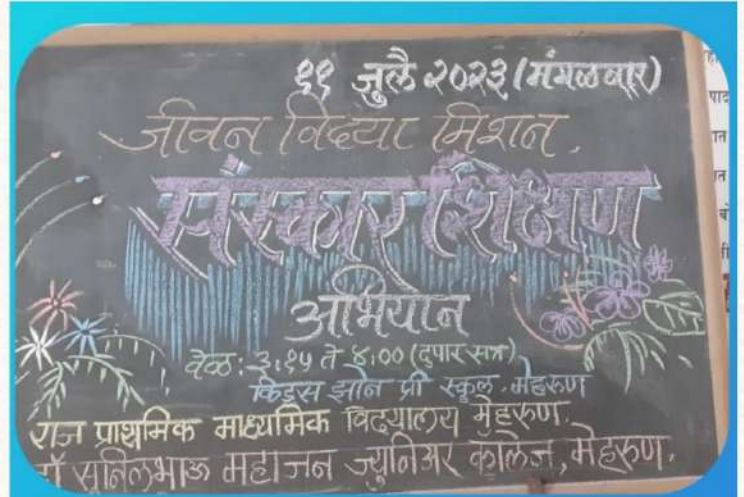 ११ जुलै २०२३ (मंगळवार)
जीवन विद्या मिशन.
संस्कार शिक्षण
अभियान
वेळ : ३:१५ ते ४:०० (दुपार सत्र)
किड्स झोन प्री स्कूल. मेहरुण
राज प्राथमिक माध्यमिक विद्यालय मेहरुण.
डॉ सुनिलभाऊ महाजन ज्युनिअर कॉलेज, मेहरुण.